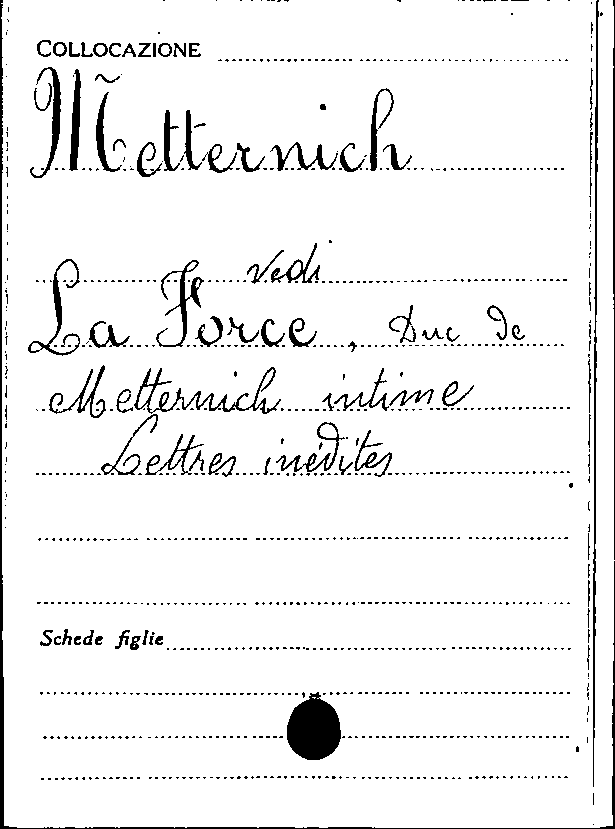 COLLOCAZIONE
Metternich
Vedi
La Force, Duc de
Metternich intime
Lettres inédites
Schede figlie